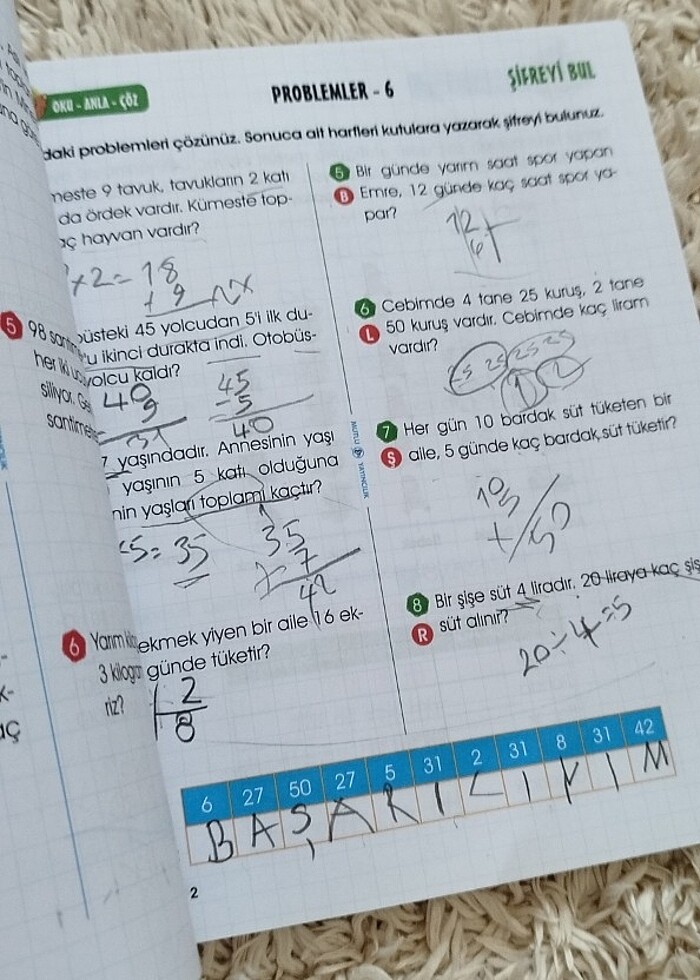 OKU - ANLA - ÇÖZ
PROBLEMLER - 6
ŞİFREYİ BUL
daki problemleri çözünüz. Sonuca ait harfleri kutulara yazarak şifreyi bulunuz.
meste 9 tavuk, tavukların 2 katı
da ördek vardır. Kümeste top-
aç hayvan vardır?
x2=18
+ 9
büsteki 45 yolcudan 5'i ilk du-
u ikinci durakta indi. Otobüs-
yolcu kaldı?
40
9
31
45
-5
40
7 yaşındadır. Annesinin yaşı
yaşının 5 katı olduğuna
nin yaşları toplamı kaçtır?
5=35
35
7
42
ekmek yiyen bir aile 16 ek-
günde tüketir?
2
8
5 Bir günde yarım saat spor yapan
B Emre, 12 günde kaç saat spor ya-
par?
12
6
6 Cebimde 4 tane 25 kuruş, 2 tane
L 50 kuruş vardır. Cebimde kaç liram
vardır?
25 25 25 25
1 2
MUTLU YAYINCILIK
7 Her gün 10 bardak süt tüketen bir
Ş aile, 5 günde kaç bardak süt tüketir?
10
50
8 Bir şişe süt 4 liradır. 20 liraya kaç şiş
R süt alınır?
20÷4=5
6 27 50 27 5 31 2 31 8 31 42
B A Ş A R I L I Y I M
2
5 98
her iki
siliyor.
6 Yarım
3
riz?